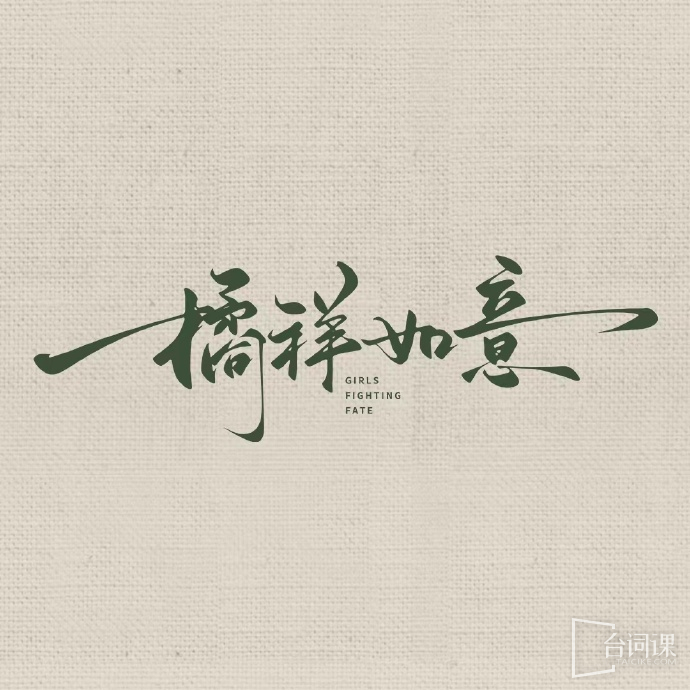 橘祥如意
GIRLS
FIGHTING
FATE
台词课